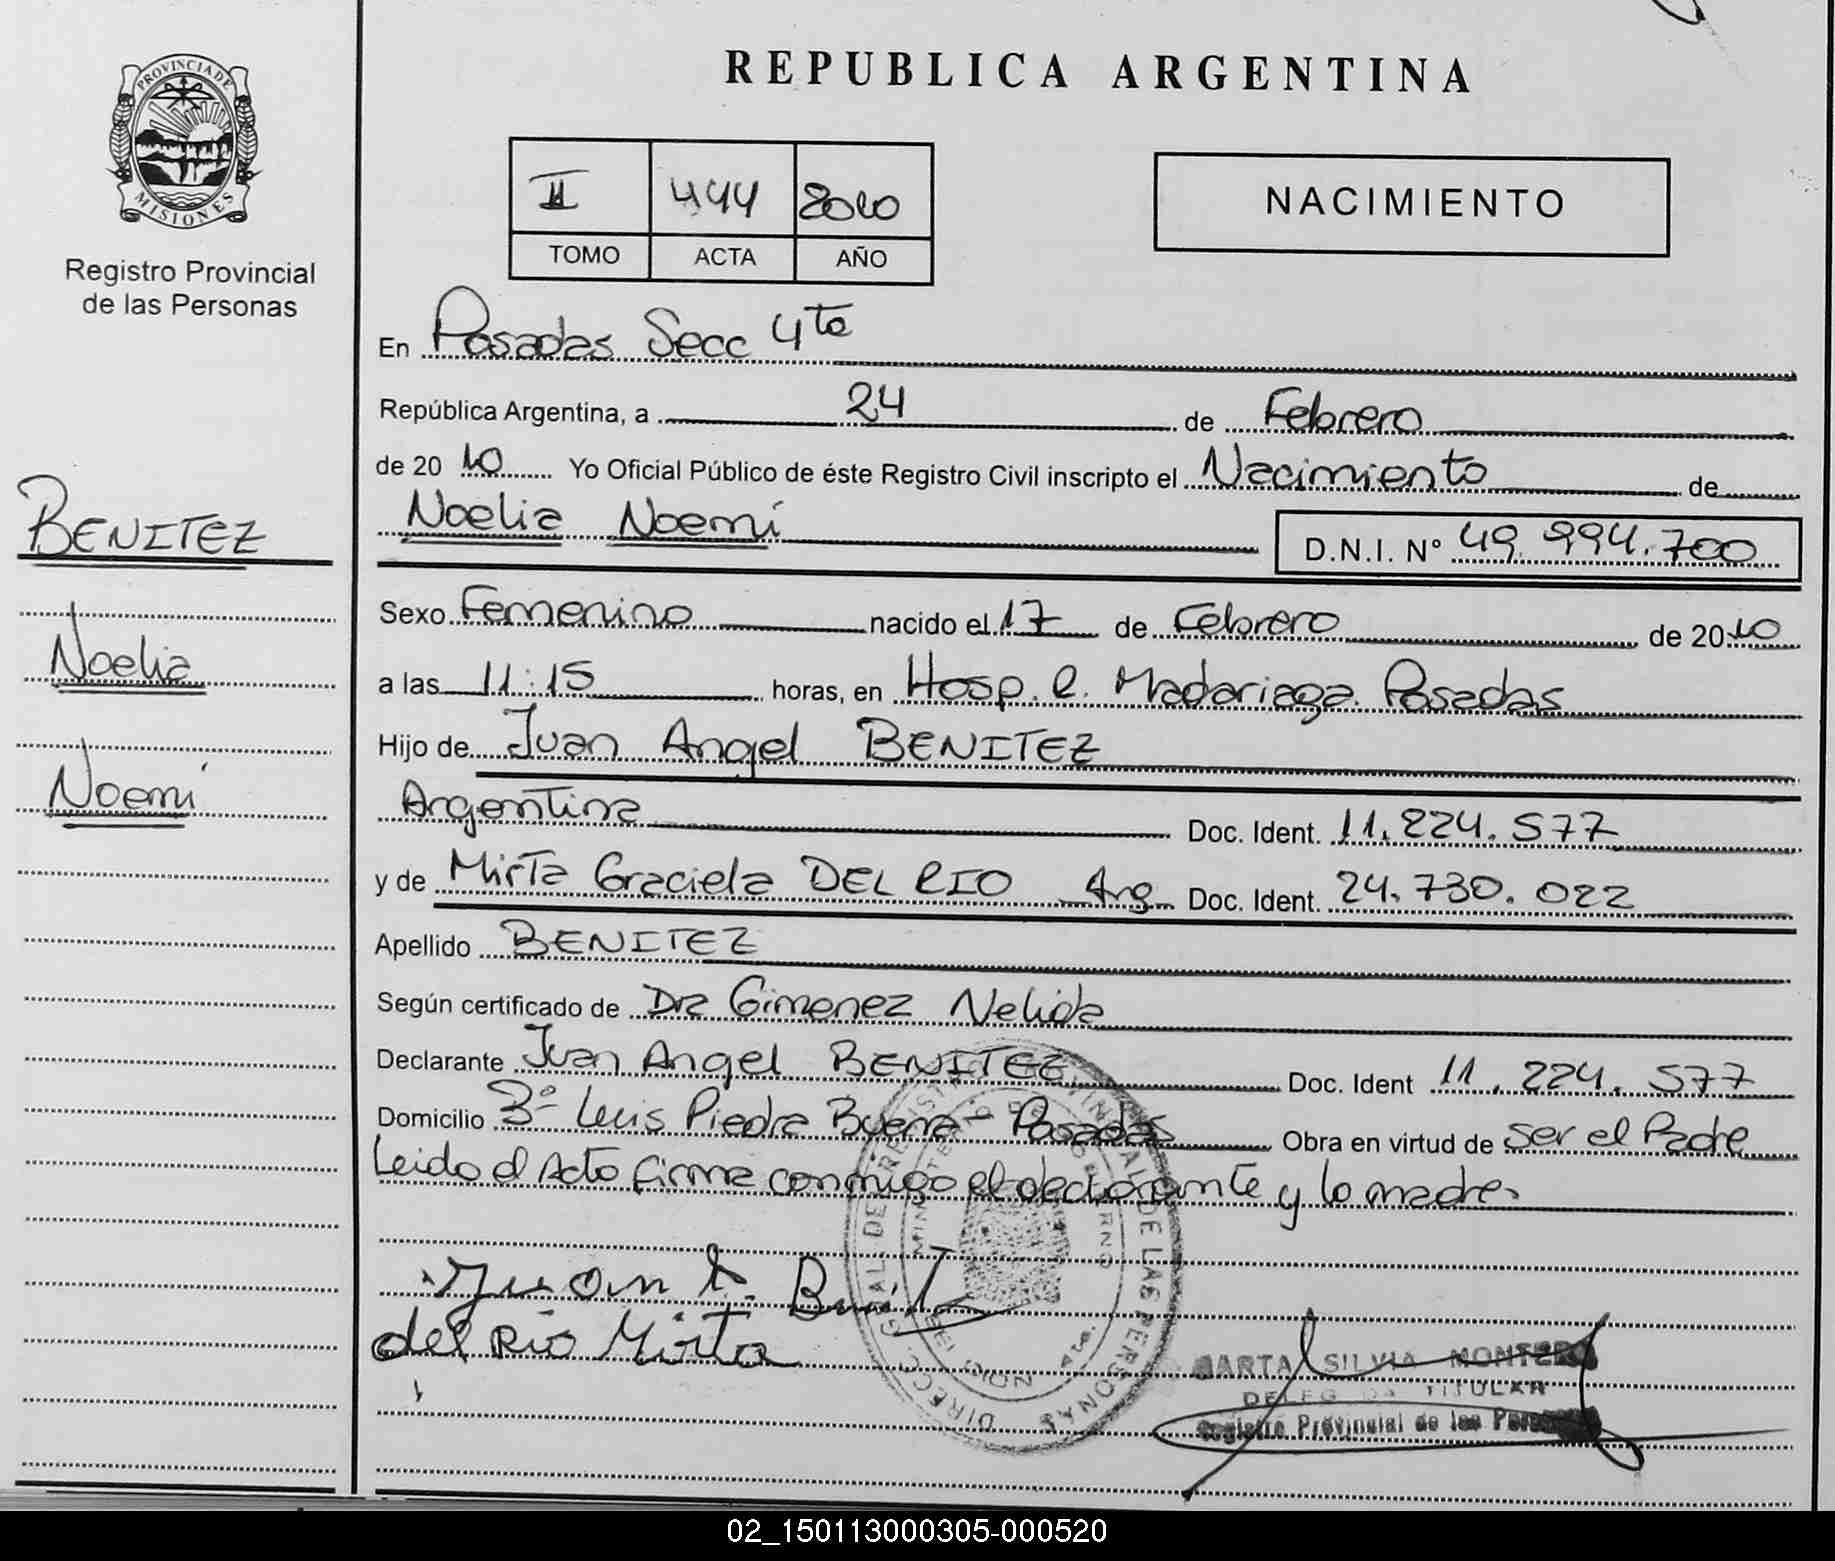 REPUBLICA ARGENTINA
PROVINCIA DE
MISIONES
Registro Provincial
de las Personas
II 444 2010
TOMO ACTA AÑO
NACIMIENTO
En Posadas Secc 4ta
República Argentina, a 24 de Febrero
de 20 10 Yo Oficial Público de éste Registro Civil inscripto el Nacimiento de
Noelia Noemí D.N.I. N° 49.994.700
BENITEZ
Noelia
Noemí
Sexo Femenino nacido el 17 de Febrero de 20 10
a las 11:15 horas, en Hosp. R. Madariaga. Posadas
Hijo de Juan Angel BENITEZ
Argentina Doc. Ident. 11.224.577
y de Mirta Graciela DEL RIO Arg Doc. Ident. 24.730.022
Apellido BENITEZ
Según certificado de Dra Gimenez Nelida
Declarante Juan Angel BENITEZ Doc. Ident 11.224.577
Domicilio Bº Luis Piedra Buena - Posadas Obra en virtud de ser el Padre
Leido el Acto firma conmigo el declarante y la madre.
Juan A. Benitez
del Rio Mirta
MARTA SILVIA MONTERO
DELEGADA TITULAR
Registro Provincial de las Personas
02_150113000305-000520